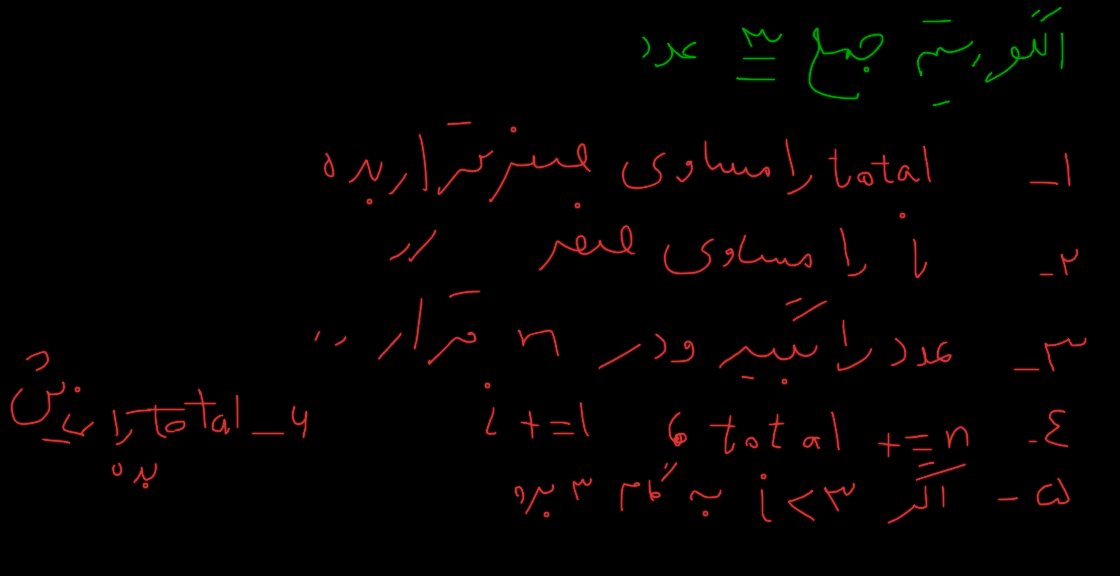 الگوریتم جمع ۳ عدد
۱_ total را مساوی صفر قرار بده
۲_ i را مساوی صفر //
۳_ عدد را بگیر و در n قرار ''
٤_ total += n ، i += 1
۵_ اگر i < ۳ به گام ۳ برو
۶_ total را نمایش بده